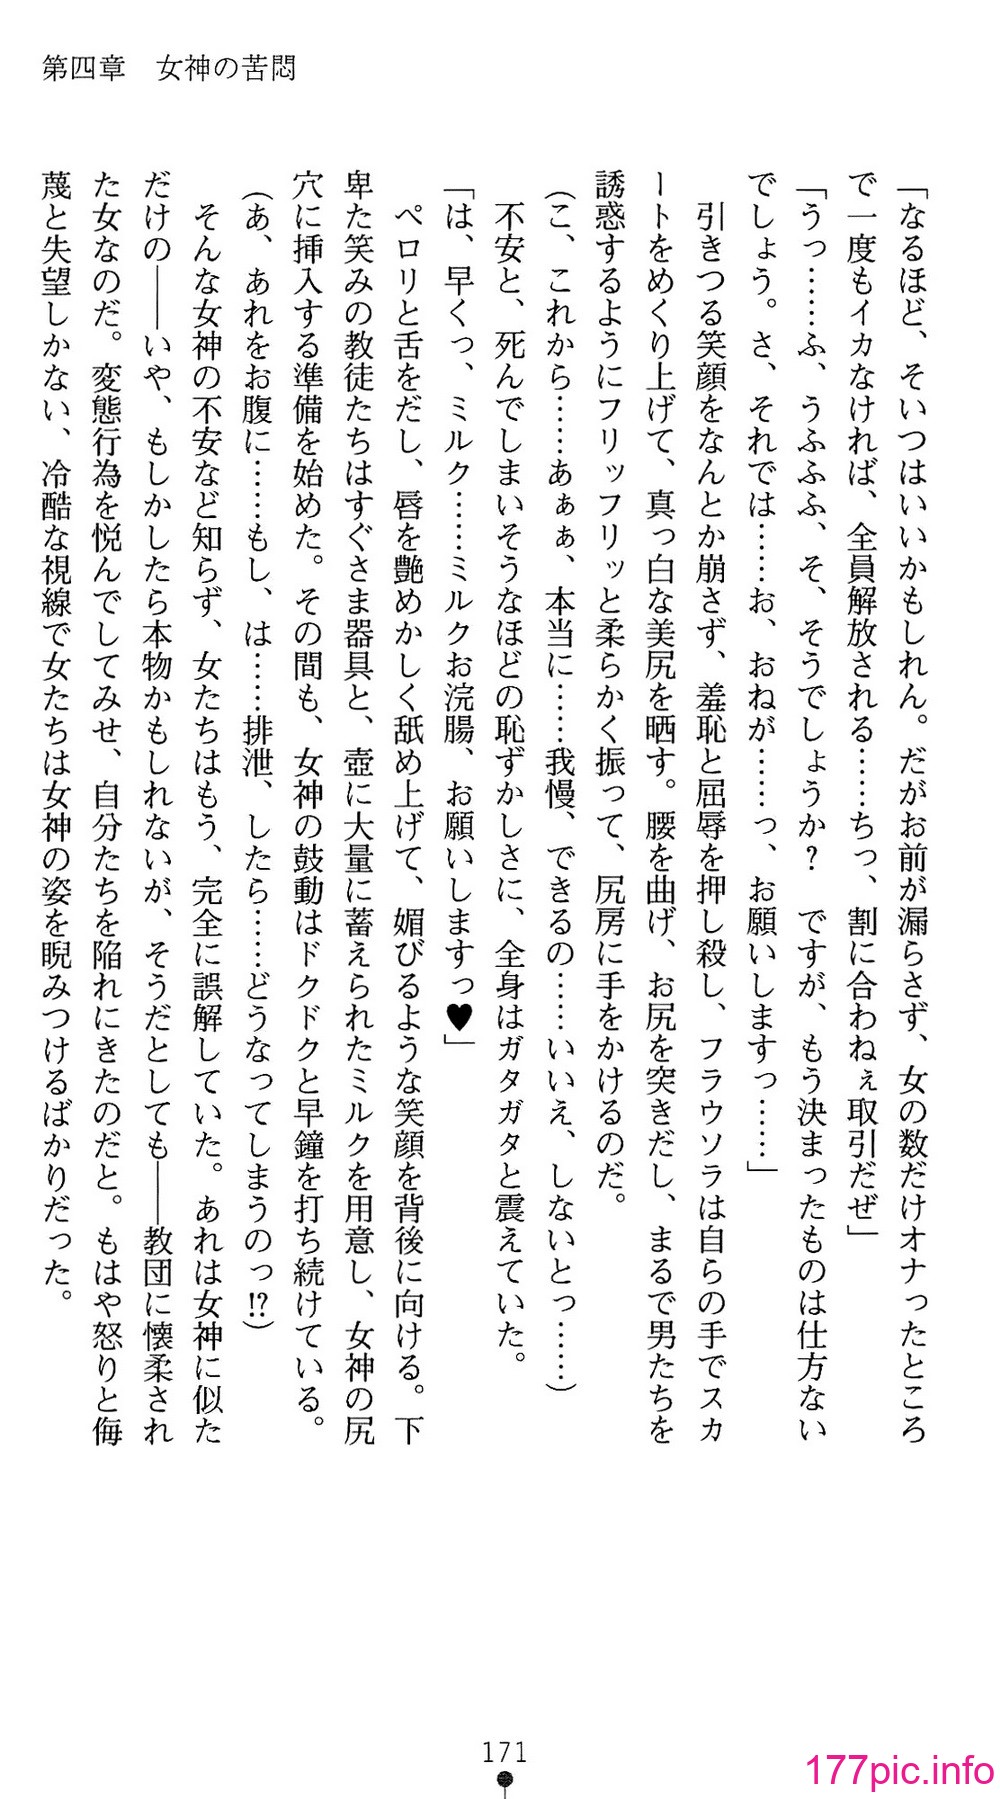 第四章　女神の苦悶
「なるほど、そいつはいいかもしれん。だがお前が漏らさず、女の数だけオナったところ
で一度もイカなければ、全員解放される……ちっ、割に合わねぇ取引だぜ」
「うっ……ふ、うふふふ、そ、そうでしょうか？　ですが、もう決まったものは仕方ない
でしょう。さ、それでは……お、おねが……っ、お願いしますっ……」
　引きつる笑顔をなんとか崩さず、羞恥と屈辱を押し殺し、フラウソラは自らの手でスカ
ートをめくり上げて、真っ白な美尻を晒す。腰を曲げ、お尻を突きだし、まるで男たちを
誘惑するようにフリッフリッと柔らかく振って、尻房に手をかけるのだ。
（こ、これから……あぁぁ、本当に……我慢、できるの……いいえ、しないとっ……）
　不安と、死んでしまいそうなほどの恥ずかしさに、全身はガタガタと震えていた。
「は、早くっ、ミルク……ミルクお浣腸、お願いしますっ♥」
　ペロリと舌をだし、唇を艶めかしく舐め上げて、媚びるような笑顔を背後に向ける。下
卑た笑みの教徒たちはすぐさま器具と、壺に大量に蓄えられたミルクを用意し、女神の尻
穴に挿入する準備を始めた。その間も、女神の鼓動はドクドクと早鐘を打ち続けている。
（あ、あれをお腹に……もし、は……排泄、したら……どうなってしまうのっ!?）
　そんな女神の不安など知らず、女たちはもう、完全に誤解していた。あれは女神に似た
だけの――いや、もしかしたら本物かもしれないが、そうだとしても――教団に懐柔され
た女なのだ。変態行為を悦んでしてみせ、自分たちを陥れにきたのだと。もはや怒りと侮
蔑と失望しかない、冷酷な視線で女たちは女神の姿を睨みつけるばかりだった。
171
177pic.info